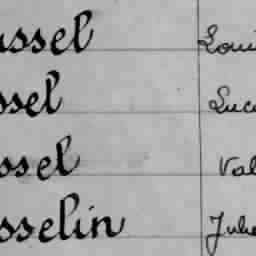 ussel Loui
ssel Luci
ssel Val
sselin Jule